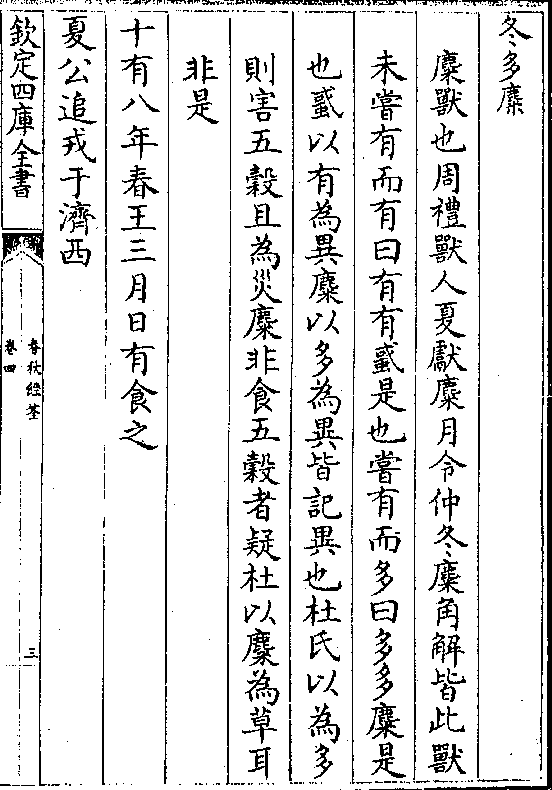 冬多麋
麋獸也周禮獸人夏獻麋月令仲冬麋角解皆此獸
未嘗有而有曰有有蜮是也嘗有而多曰多多麋是
也蜮以有為異麋以多為異皆記異也杜氏以為多
則害五穀且為災麋非食五穀者疑杜以麋為草耳
非是
十有八年春王三月日有食之
夏公追戎于濟西
欽定四庫全書
春秋經筌
卷四
三